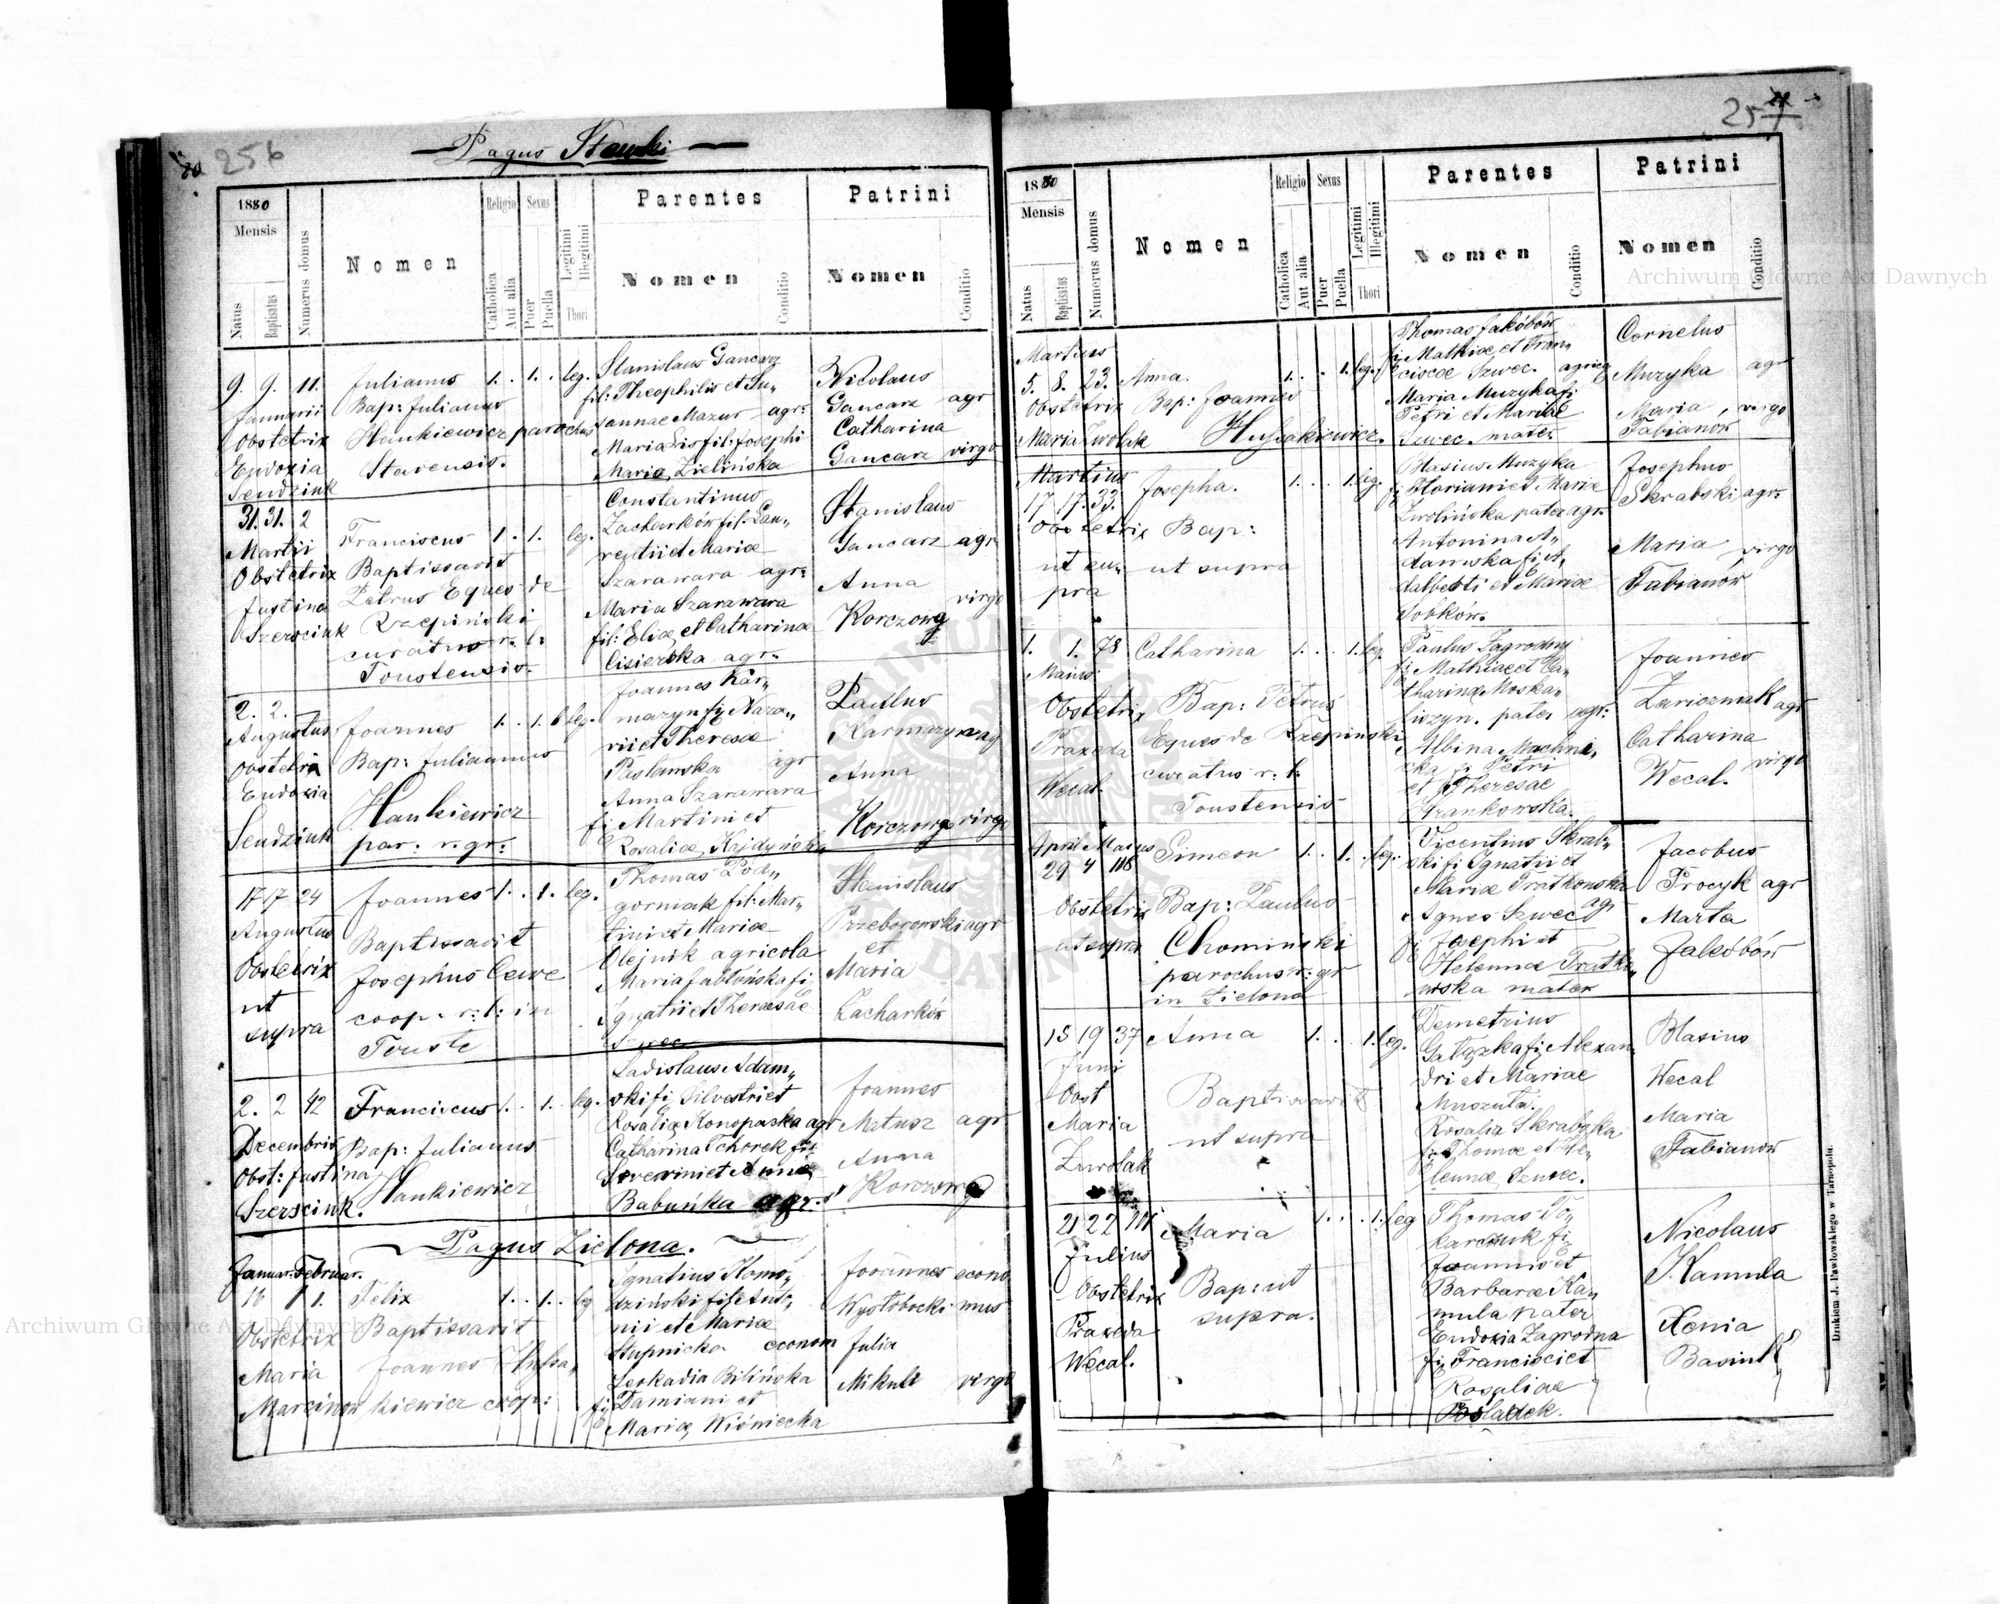 256
Pagus Stawki
1880
Mensis
Natus
Baptisatus
Numerus domus
Nomen
Religio
Catholica
Aut alia
Sexus
Puer
Puella
Legitimi
Illegitimi
Thori
Parentes
Nomen
Conditio
Patrini
Nomen
Conditio
9. 9. 11. Julianus 1. . 1. . leg. Stanislaus Gancarz Nicolaus
Januarii Bap: Julianus fil: Theophili et Su„ Gancarz agr
Obstetrix Hankiewicz parochus sannae Mazur agr: Catharina
Eudoxia Stavensis. Maria Lis fil: Josephi Gancarz virgo
Sendziuk Maria Zielińska
31. 31. 2 Franciscus 1. . 1. leg. Constantinus Stanislaus
Martii Baptisavit Zacharków fil: Lau„ Gancarz agr
Obstetrix Petrus Eques de rentii et Mariae Anna
Justina Rzepiński Szarawara agr: Korczowy virgo
Szersciuk curatus r. l. Maria Szarawara
Toustensis. fil: Eliae et Catharinae
Cisierska agr.
2. 2. Joannes 1. . 1. leg. Joannes Kar„ Paulus
Augustus Bap: Julianus mazyn fi Naza„ Karmazyn agr
Obstetrix Hankiewicz rii et Theresae Anna
Eudoxia par. r. gr. Paslawska agr Korczowy virgo
Sendziuk Anna Szarawara
fi Martini et
Rosaliae Kajdyńska
17 17 24 Joannes 1. . 1. leg. Thomas Pod„ Stanislaus
Augustus Baptisavit gorniak fil: Mar„ Przeborowski agr
Obstetrix Josephus Cewe tini et Mariae et
ut coop. r. l. in Olejnik agricola Maria
supra Touste Maria Jabłońska fi Zacharków
Ignatii et Theresae
Szwec
2. 2 42 Franciscus 1. . 1. . leg. Ladislaus Adam„ Joannes
Decembris Bap: Julianus ski fi Silvestri et Matusz agr
Obst: Justina Hankiewicz Rosaliae Konopaska agr Anna
Szersciuk. Catharina Tchorek fi Korczowy
Severini et Annae
Babuńka agr.
Pagus Zielona.
Januar. Februar.
16 1 1. Felix 1. . 1. . leg Ignatius Komo„ Joannes econo
Obstetrix Baptisavit dziński fi Anto„ Wysłobocki mus
Maria Joannes Hussa„ nii et Mariae Julia
Marcinow kiewicz coop: Stupnicka econom Mikuli virgo
Leokadia Bilińska
fi Damiani et
Mariae Wiśniecka
257
1880
Mensis
Natus
Baptisatus
Numerus domus
Nomen
Religio
Catholica
Aut alia
Sexus
Puer
Puella
Legitimi
Illegitimi
Thori
Parentes
Nomen
Conditio
Patrini
Nomen
Conditio
Martius Thomas Jakóbow Cornelus
5. 8. 23. Anna. 1. . . 1. leg. fi Mathiae et Fran„ Muzyka agr
Obstetrix Bap: Joannes ciscae Szwec. agric Maria, virgo
Maria Zwolak Hussakiewicz. Maria Muzyka fi Fabianow
Petri et Mariae
Szwec. mater
Martius Blasius Muzyka Josephus
17 17. 33. Josepha. 1. . . 1. leg. fi Floriani et Mariae Skrabski agr.
Obstetrix Bap: Zwolińska pater agr. Maria virgo
ut su„ ut supra Antonina A„ Fabianów
pra damska fi A„
dalberti et Mariae
Sobków.
1. 1. 78 Catharina 1. . . 1. leg. Paulus Zagrodny Joannes
Maius fi Mathiae et Ca„ Zariczniak agr
Obstetrix Bap: Petrus tharinae Moska„ Catharina
Praxeda Eques de Rzepiński liszyn. pater agr: Wecal. virgo
Wecal curatus r. l. Albina Machni„
Toustensis cka fi Petri
et Theresae
Grankowska.
April Maius Vicentius Skrab„ Jacobus
29 4 118 Simeon 1. . 1. . leg. ski fi Ignatii et Procyk agr
Obstetrix Bap: Paulus Mariae Tratkowska Marta
ut supra Chomiński Agnes Szwec agr Jakóbów
parochus r. gr fi Josephi et
in Zielona Helenae Tratko„
wska mater
15 19 37 Anna 1. . . 1. leg. Demetrius Blasius
Juni Baptisavit Gałązka fi Alexan„ Wecal
Obst ut supra dri et Mariae Maria
Maria Muszuta. Fabianow
Zwolak Rosalia Skrabska
fi Thomae et He„
lenae Szwec.
21 22 111 Maria 1. . . 1. leg Thomas To„ Nicolaus
Julius Bap: ut karczuk fi Kamula
Obstetrix supra. Joannis et Xenia
Praxeda Barbarae Ka„ Basiuk
Wecal. mula pater
Eudoxia Zagrodna
fi Francisci et
Rosaliae
Posladek.
Drukiem J. Pawłowskiego w Tarnopolu.
Archiwum Główne Akt Dawnych
Archiwum Główne Akt Dawnych